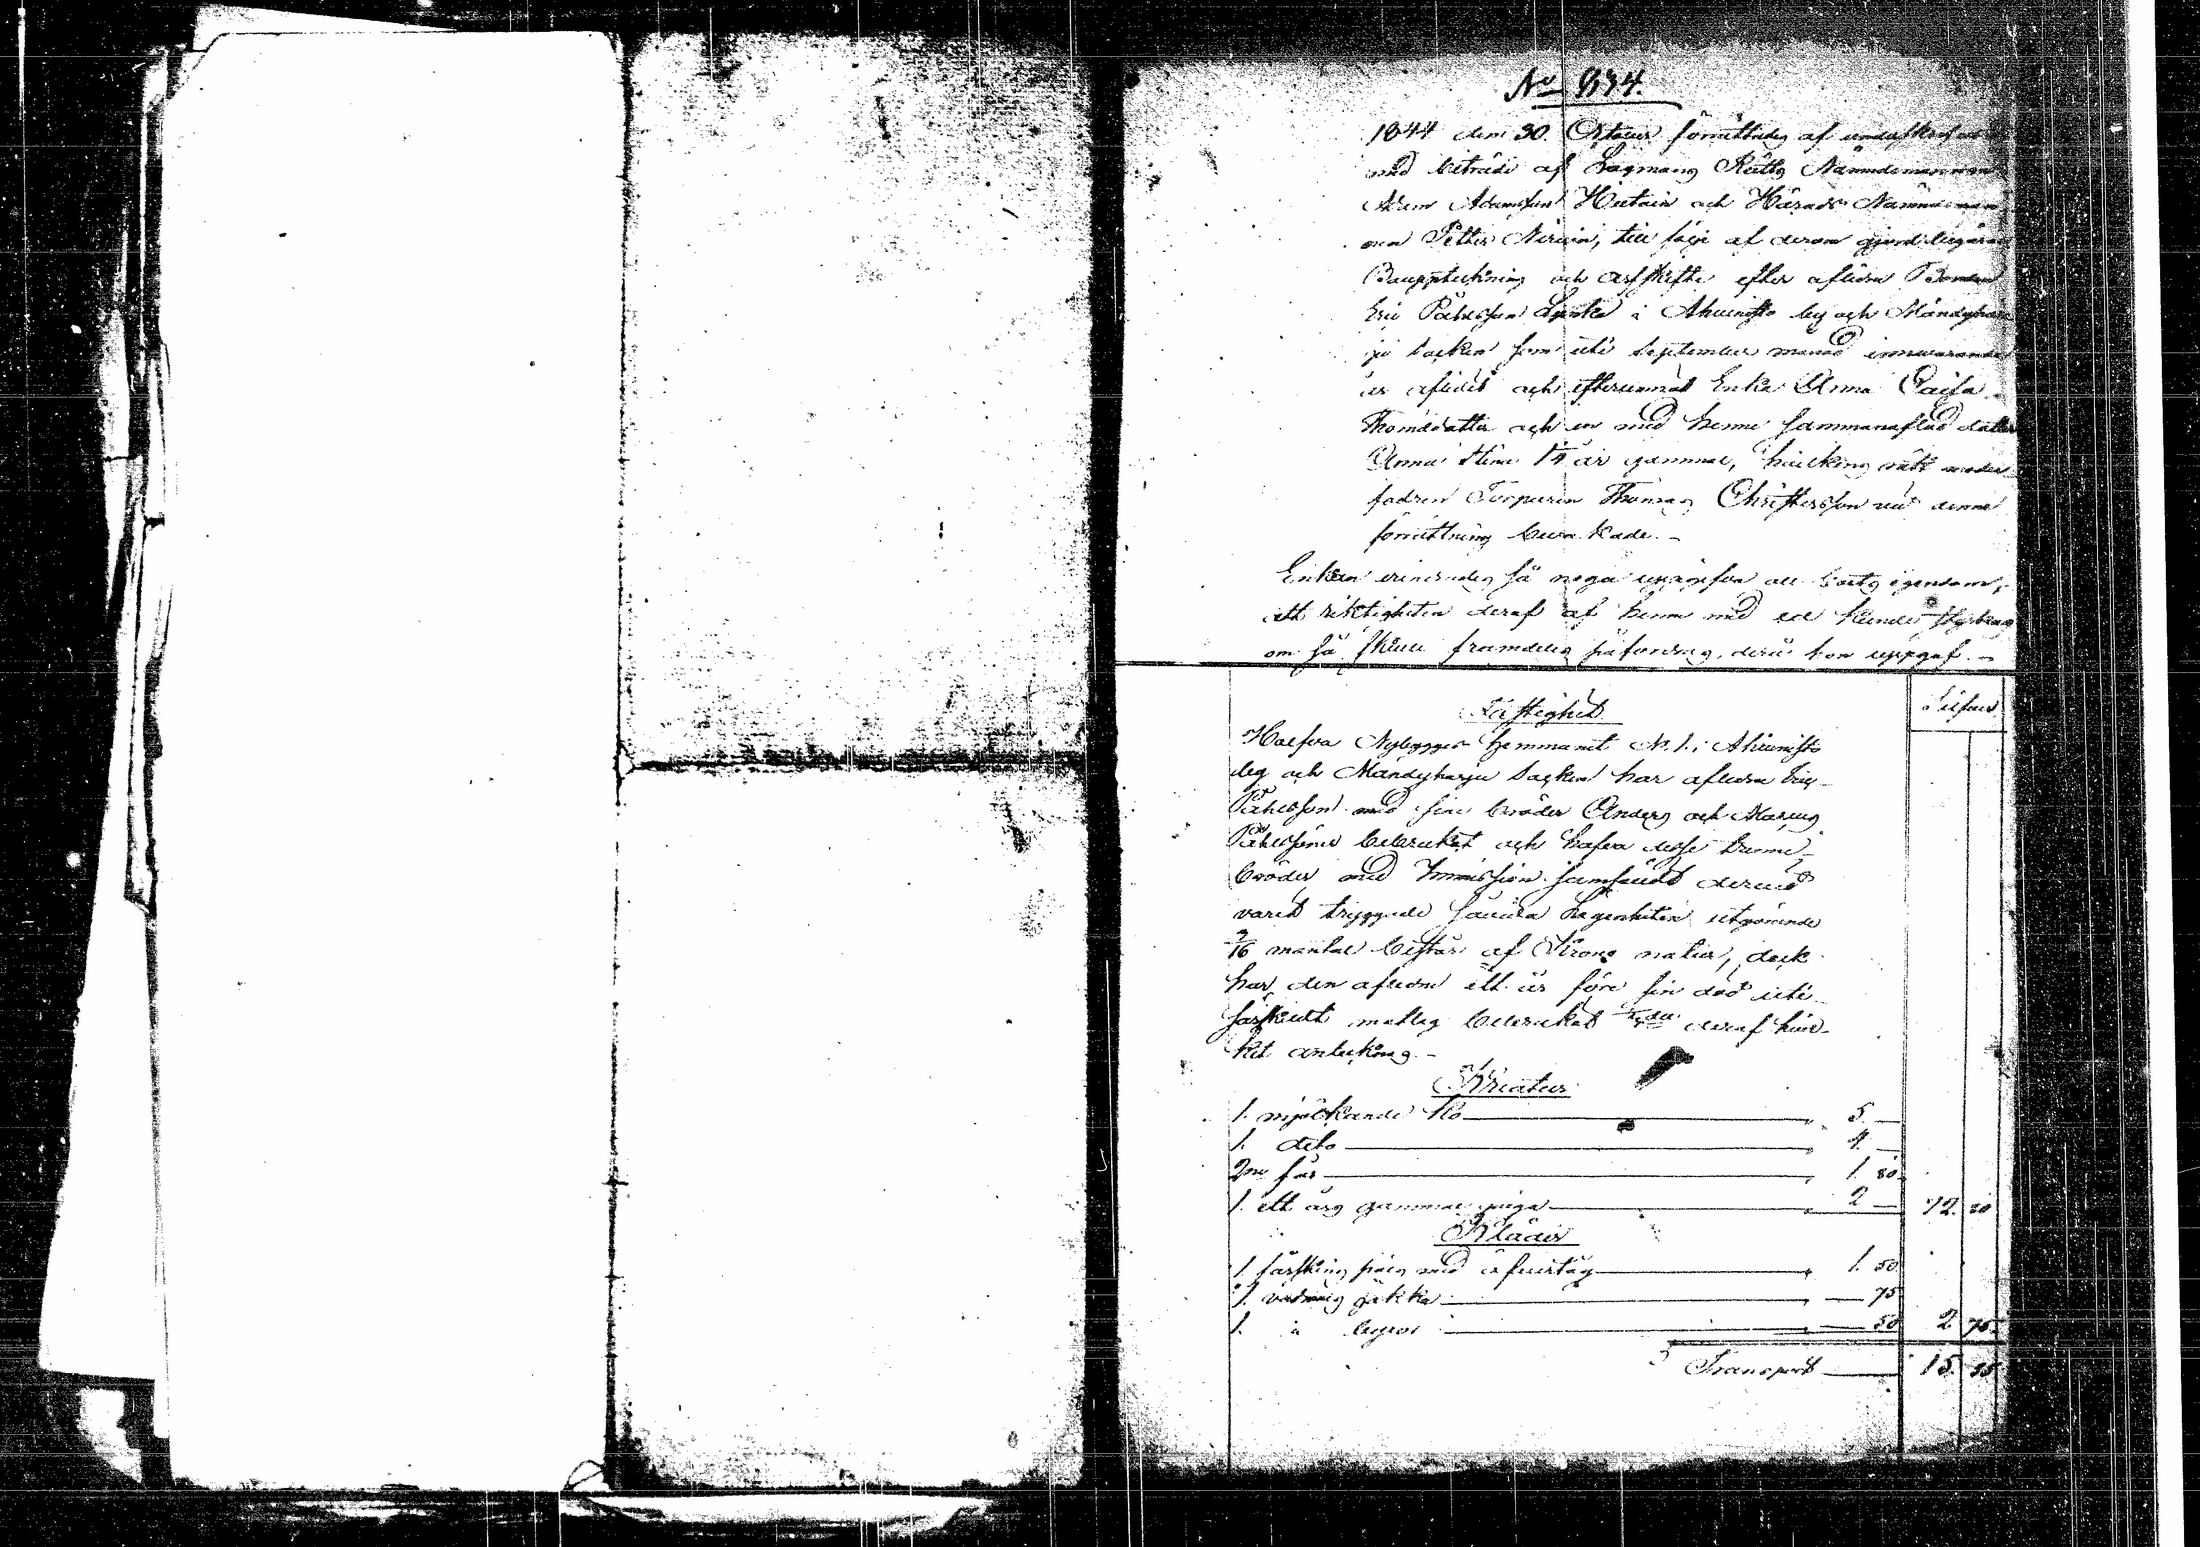 No 834.
1844 den 30. October förrättades af undertecknad
med biträde af Lagmans Rätts Nämndemannen
Adam Adamsson Hietain och Härads Nämndeman
nen Petter Nirvin, till följe af derom gjord begäran
Bouppteckning och arfskifte efter aflidne Bonden
Eric Påhlsson i Ahvenisto by och Mändyhar
ju socken som uti September månad innevarande
år aflidit och efterlemnat Enka Anna Caisa
Thomasdotter och en med henne sammanaflad dotter
Anna Stina 1/4 år gammal, hvilkens rätt moder
fadren Torparen Thomas Christersson vid denne
förrättning bevakade. –
Enkan erinrades så noga uppgifva all boets egendom,
att riktigheten deraf af henne med ed kunde styrkas
om så skulle framdeles påfordras, derå hon uppgaf. –
Fastighet
Silfver
Halfva Nybygges hemmanet N. 1. i Ahvenisto
by och Mändyharju socken har aflidne Eric
Påhlsson med sine bröder Anders och Marcus
Påhlssöner bebrukat och hafva desse trenne
bröder med Immission samfäldt derå
varit tryggade sådan Lägenheten utgörande
3/16 mantal består af Krono natur, dock
har den aflidne ett år före sin död uti
särskildt matlag bebrukat deraf hvil-
ket antecknas. –
Kreatur
1. mjölkande ko 5. —
1. dito 4. —
2ne får 1. 80.
1. ett års gammal qviga 2 — 12. 80
Kläder
1. fårskins päls med öfvertåg 1. 50
1. vadmals jacka — 75
1. d:o byxor — 50 2. 75.
Transport 15. 55